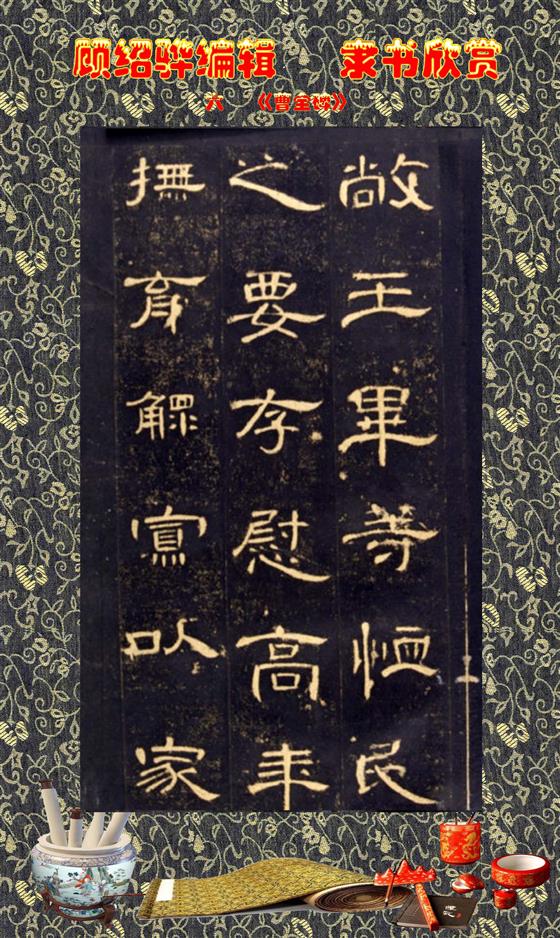 顾绍骅编辑 隶书欣赏
六 《曹全碑》
敞王畢等恤民
之要存慰高年
撫育鰥寡以家